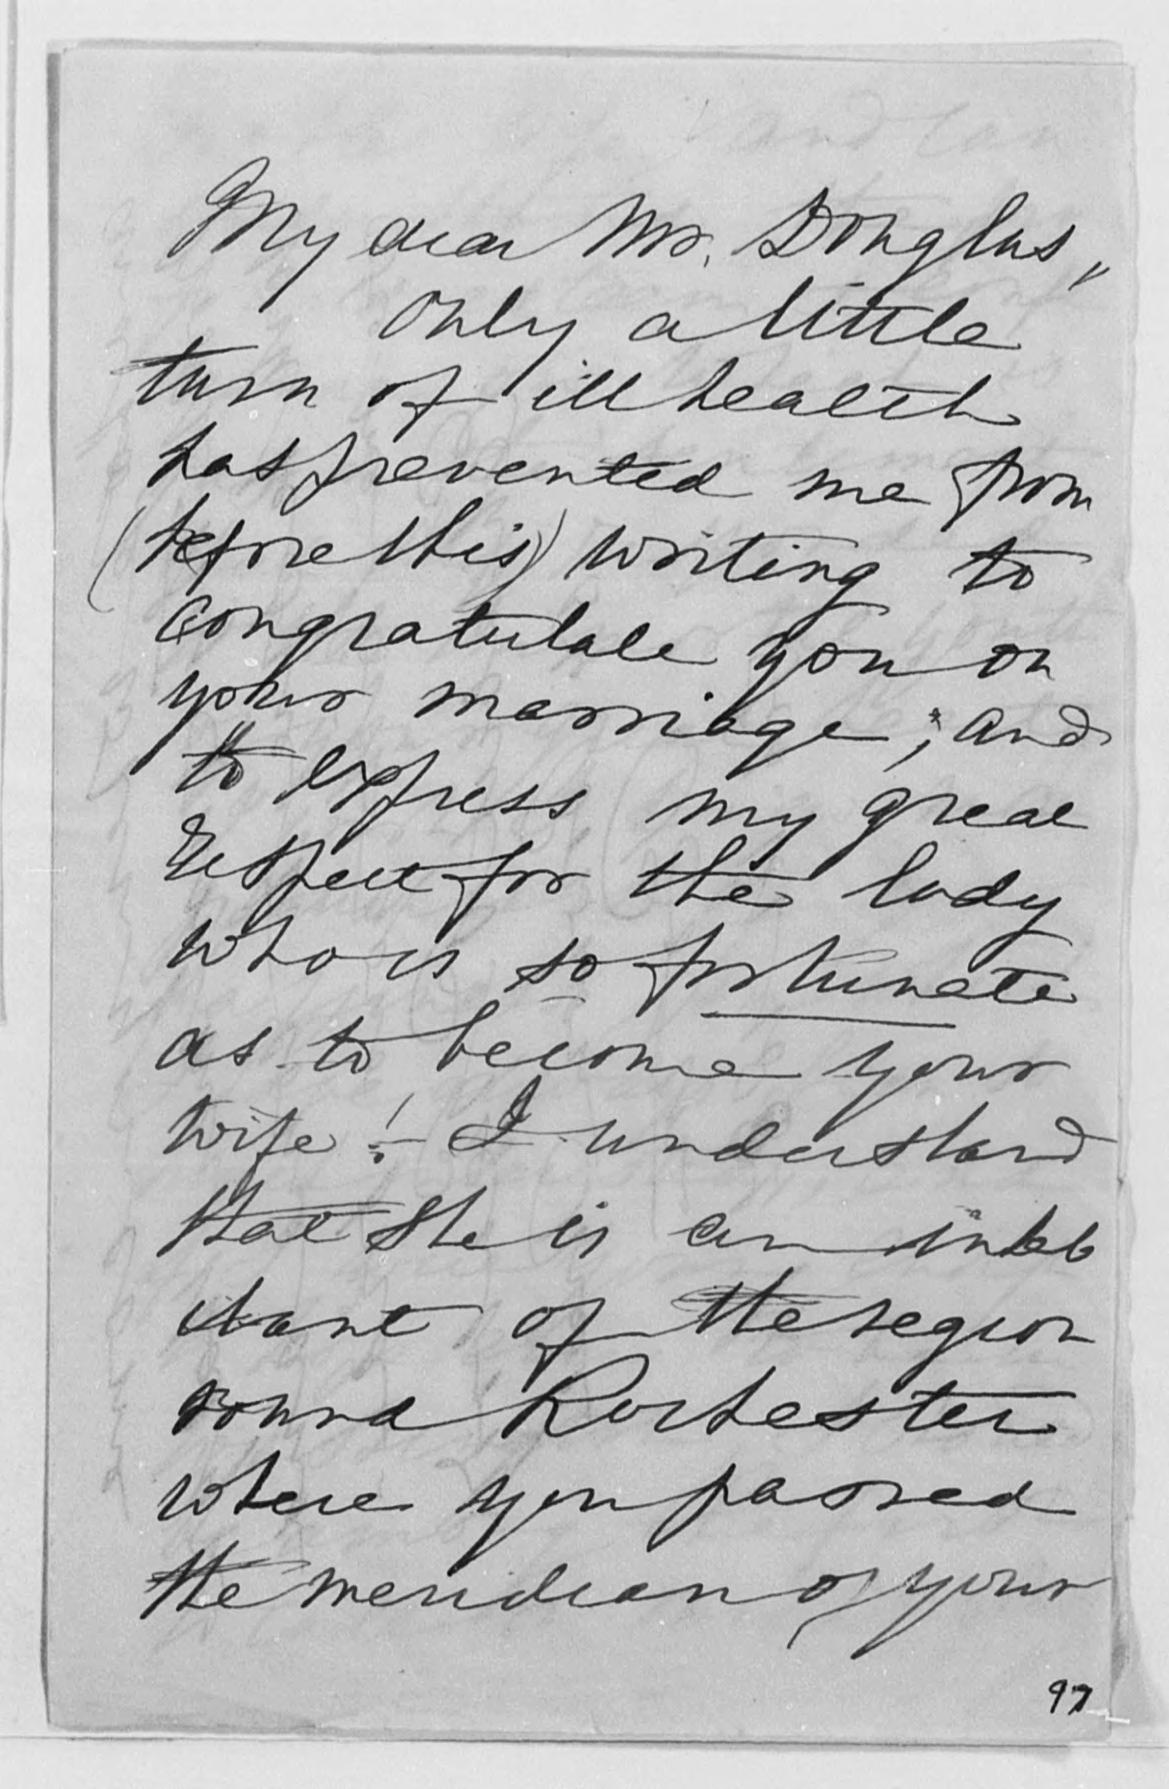 My dear Mr. Douglas,
Only a little
turn of ill health
has prevented me from
(before this) writing to
congratulate you on
your marriage; and
to express my great
respect for the lady
who is so fortunate
as to become your
wife! - I understand
that she is an inhab
itant of the region
round Rochester
where you passed
the meridian of your
97